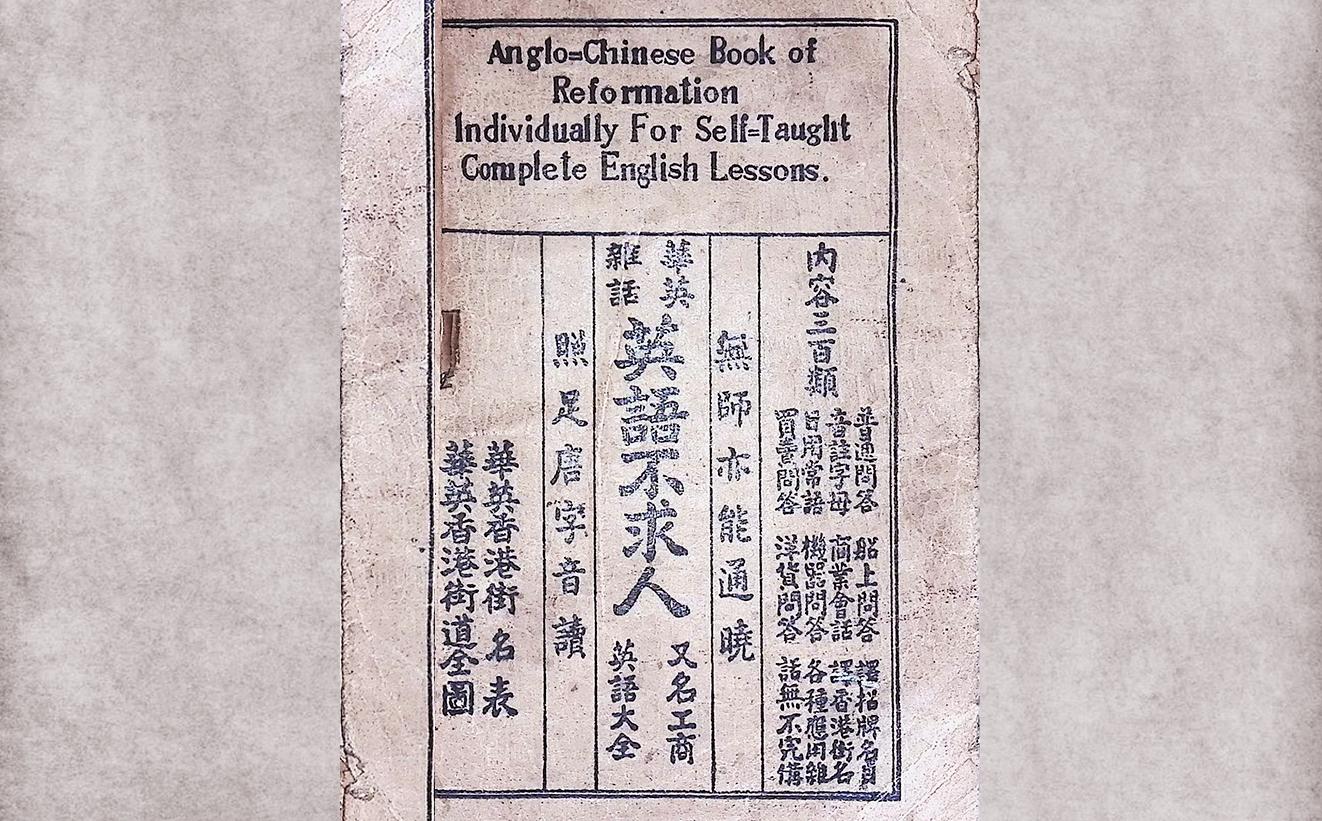 Anglo=Chinese Book of
Reformation
Individually For Self=Taught
Complete English Lessons.
內容三百類
普通問答 船上問答 譯招牌名目
音註字母 商業會話 譯香港街名
日用常語 機器問答 各種應用雜
買賣問答 洋貨問答 話無不完備
無師亦能通曉
華英
雜話
英語不求人
又名工商
英語大全
照足唐字音讀
華英香港街名表
華英香港街道全圖